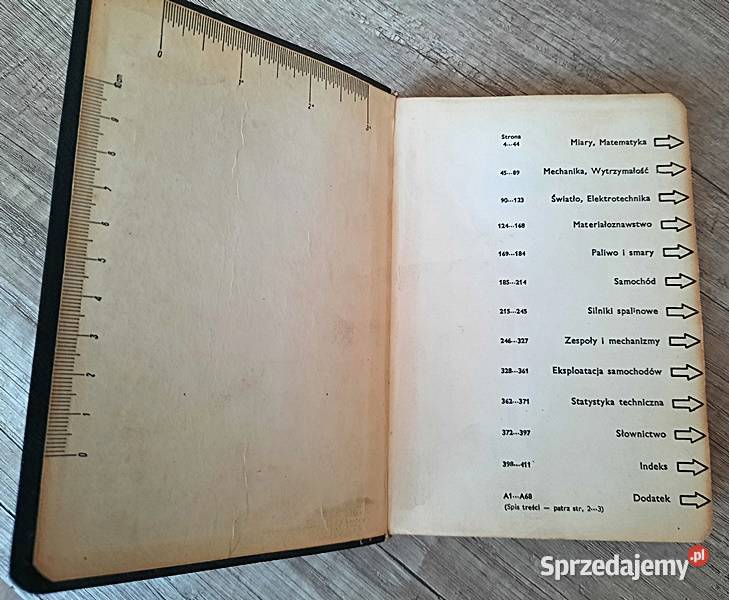 0 1" 2" 3"
Strona
4...44 Miary, Matematyka
45...89 Mechanika, Wytrzymałość
90...123 Światło, Elektrotechnika
124...168 Materiałoznawstwo
169...184 Paliwo i smary
185...214 Samochód
215...245 Silniki spalinowe
246...327 Zespoły i mechanizmy
328...361 Eksploatacja samochodów
362...371 Statystyka techniczna
372...397 Słownictwo
398...411 Indeks
A1...A68 Dodatek
(Spis treści — patrz str. 2...3)
9
8
7
6
5
4
3
2
1
0
Sprzedajemy.pl